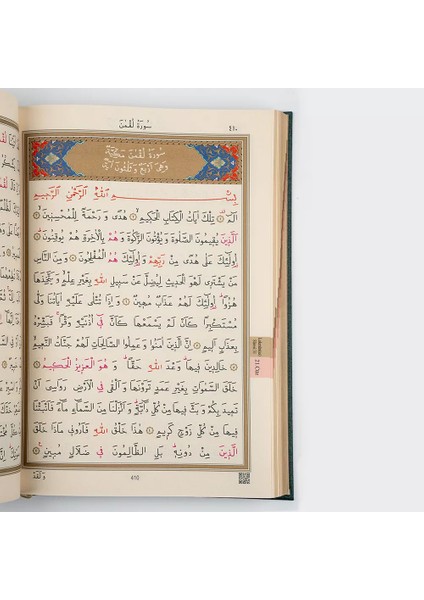 سورة لقمن ٤١٠
سورة لقمن مكية
وهى اربع وثلثون اية
بِسْمِ اللّٰهِ الرَّحْمٰنِ الرَّحِيمِ
الٓمٓ ۚ تِلْكَ اٰيَاتُ الْكِتَابِ الْحَكِيمِۙ هُدًى وَرَحْمَةً لِلْمُحْسِنِينَۙ
اَلَّذِينَ يُقِيمُونَ الصَّلٰوةَ وَيُؤْتُونَ الزَّكٰوةَ وَهُمْ بِالْاٰخِرَةِ هُمْ يُوقِنُونَۜ
اُو۬لٰٓئِكَ عَلٰى هُدًى مِنْ رَبِّهِمْ وَاُو۬لٰٓئِكَ هُمُ الْمُفْلِحُونَ وَمِنَ النَّاسِ
مَنْ يَشْتَرِى لَهْوَ الْحَدِيثِ لِيُضِلَّ عَنْ سَبِيلِ اللّٰهِ بِغَيْرِ عِلْمٍۗ وَيَتَّخِذَهَا
هُزُوًاۜ اُو۬لٰٓئِكَ لَهُمْ عَذَابٌ مُهِينٌ وَاِذَا تُتْلٰى عَلَيْهِ اٰيَاتُنَا وَلّٰى
مُسْتَكْبِرًا كَاَنْ لَمْ يَسْمَعْهَا كَاَنَّ فٓى اُذُنَيْهِ وَقْرًاۚ فَبَشِّرْهُ
بِعَذَابٍ اَلِيمٍ اِنَّ الَّذِينَ اٰمَنُوا وَعَمِلُوا الصَّالِحَاتِ لَهُمْ جَنَّاتُ النَّعِيمِۙ
خَالِدِينَ فِيهَاۜ وَعْدَ اللّٰهِ حَقًّاۜ وَهُوَ الْعَزِيزُ الْحَكِيمُ
خَلَقَ السَّمٰوَاتِ بِغَيْرِ عَمَدٍ تَرَوْنَهَا وَاَلْقٰى فِى الْاَرْضِ رَوَاسِىَ اَنْ
تَمِيدَ بِكُمْ وَبَثَّ فِيهَا مِنْ كُلِّ دَٓابَّةٍۜ وَاَنْزَلْنَا مِنَ السَّمَٓاءِ مَٓاءً فَاَنْبَتْنَا
فِيهَا مِنْ كُلِّ زَوْجٍ كَرِيمٍ هٰذَا خَلْقُ اللّٰهِ فَاَرُونِى مَاذَا خَلَقَ
الَّذِينَ مِنْ دُونِهۜ بَلِ الظَّالِمُونَ فِى ضَلَالٍ مُبِينٍ
410 وَلَقَدْ
21.Cüz